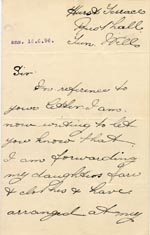 Hurst Terrace
Rusthall
Tun. Wells
Sir.
In reference to
your letter I am
now writing to let
you know that
I am forwarding
my daughters fare
& clothes & have
arranged at my